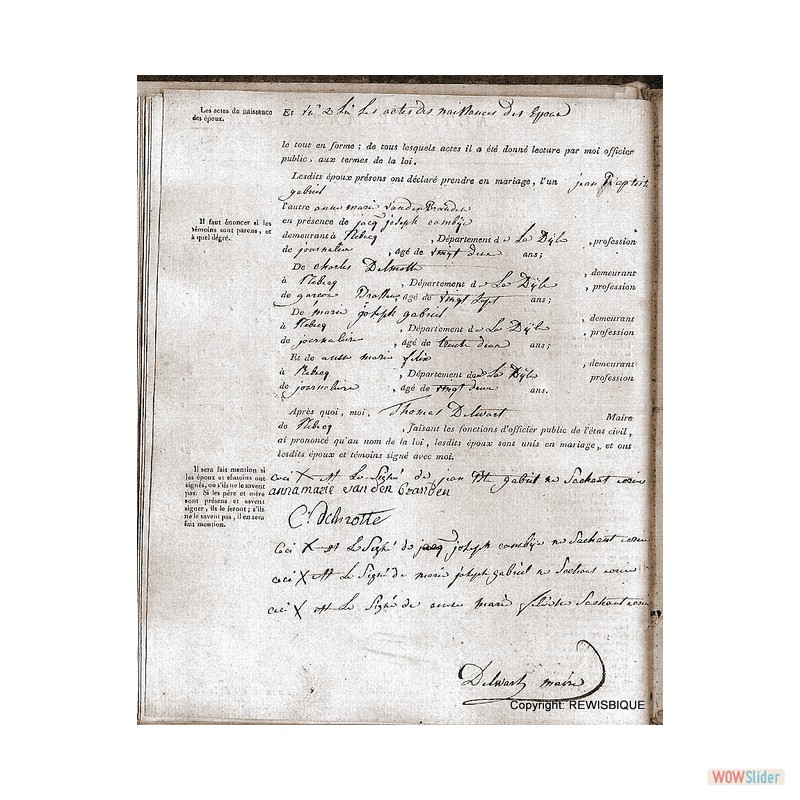 Les actes de naissance
des époux.
Et lu 2 lu les actes des naissances des Epoux
le tout en forme ; de tous lesquels actes il a été donné lecture par moi officier
public, aux termes de la loi.
Lesdits époux présens ont déclaré prendre en mariage, l'un jean Baptist
gabriel
l'autre anne marie vanden Branden
Il faut énoncer si les
témoins sont parens, et
à quel dégré.
en présence de jacq joseph
demeurant à Rebecq , Département de La Dÿle , profession
de journalier , agé de vingt deux ans;
De charles Delmotte , demeurant
à Rebecq , Département de La Dÿle , profession
de garçon Brasseur agé de vingt sept ans;
De marie joseph gabriel , demeurant
à Rebecq , Département de La Dÿle , profession
de journaliere , agé de trente deux ans;
Et de anne marie , demeurant
à Rebecq , Département de La Dÿle profession
de journaliere , agé de vingt deux ans.
Après quoi, moi, Thomas Delwart Maire
de Rebecq , faisant les fonctions d'officier public de l'état civil,
ai prononcé qu'au nom de la loi, lesdits époux sont unis en mariage, et ont
lesdits époux et témoins signé avec moi.
Il sera fait mention si
les époux et témoins ont
signés, ou s'ils ne le savent
pas. Si les père et mère
sont présens et savent
signer, ils le feront; s'ils
ne le savent pas, il en sera
fait mention.
ceci X est Le Signé de jean Bte gabriel ne Sachant
annamarie van den Branden
C. delmotte
Ceci X est Le Signé de jacq joseph ne Sachant
ceci X est Le Signé de marie joseph gabriel ne Sachant
ceci X est Le Signé de anne marie ne Sachant
Delwart maire
Copyright: REWISBIQUE
WOWSlider